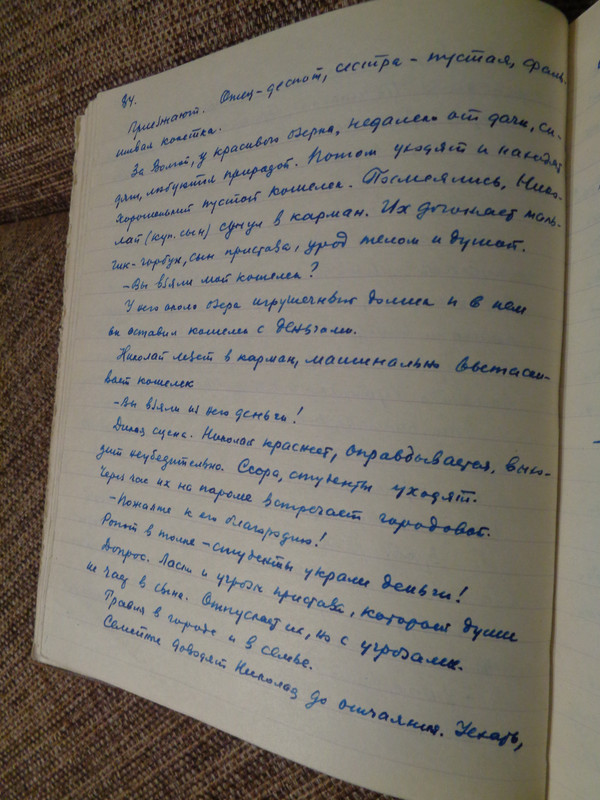 84.
Приезжают. Отец-деспот, сестра - пустая, фаль-
шивая кокетка.
За Волгой, у красивого озера, недалеко от дачи, си-
дят, любуются природой. Потом уходят и находят
хорошенький пустой кошелек. Посмеялись, Нико-
лай (куп. сын) сунул в карман. Их догоняет маль-
чик-горбун, сын пристава, урод телом и душой.
- Вы взяли мой кошелек?
У него около озера игрушечный домик и в нем
он оставил кошелек с деньгами.
Николай лезет в карман, машинально вытаски-
вает кошелек
- Вы взяли из него деньги!
Дикая сцена. Николай краснеет, оправдывается, выхо-
дит неубедительно. Ссора, студенты уходят.
Через час их на пароме встречает городовой.
- Пожалте к его благородию!
Ропот в толпе - студенты украли деньги!
Допрос. Ласки и угрозы пристава, который души
не чает в сыне. Отпускает их, но с угрозами.
Травля в городе и в семье.
Семейные доводят Николая до отчаяния. Уехать,